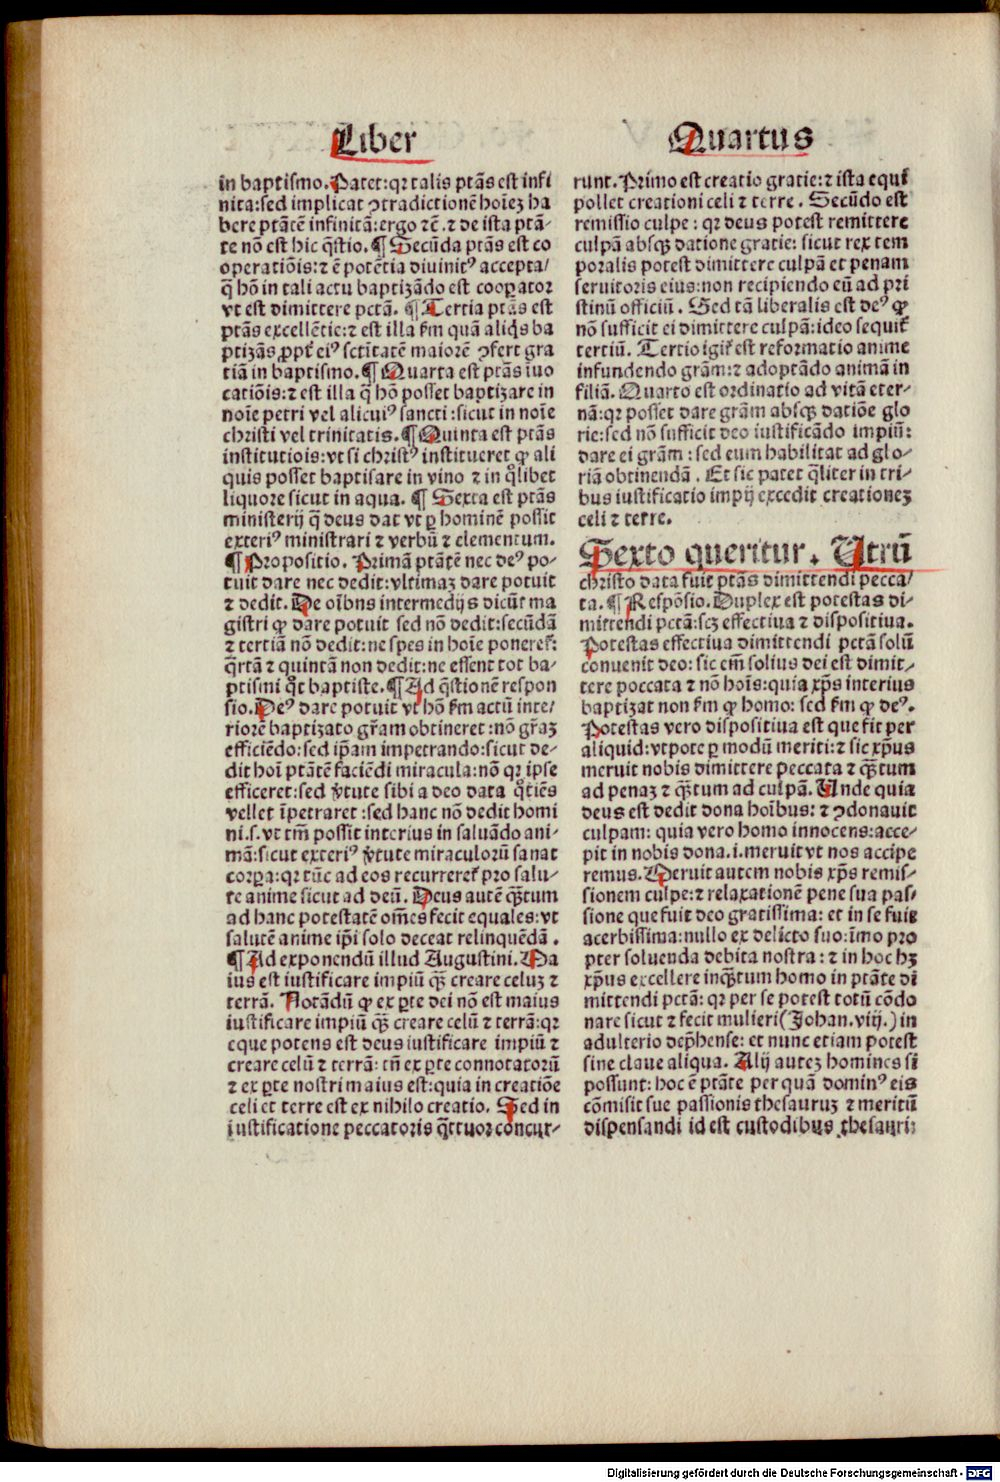 Liber Quartus
in baptismo. Patet: qr talis ptãs est infi
nita: sed implicat ꝯtradictionẽ hoiez ha
bere ptãtẽ infinitã: ergo ⁊cẽ. ⁊ de ista ptã-
te nõ est hic q̃stio. ¶ Secũda ptãs est co
operatiõis: ⁊ ẽ potẽtia diuinitꝰ accepta/
q̃ hõ in tali actu baptizãdo est cooꝑator
vt est dimittere pctã. ¶ Tertia ptãs est
ptãs excellẽtie: ⁊ est illa ẜm quã aliq̇s ba
ptizãs ꝓpt̃ eiꝰ sctĩtatẽ maiorẽ ꝯfert gra
tiã in baptismo. ¶ Quarta est ptãs ĩuo
catiõis: ⁊ est illa q̃ hõ posset baptizare in
noĩe petri vel alicuiꝰ sancti: sicut in noĩe
christi vel trinitatis. ¶ Quinta est ptãs
institutiois: vt si christꝰ institueret ꝙ ali
quis posset baptisare in vino ⁊ in q̊libet
liquore sicut in aqua. ¶ Sexta est ptãs
ministerij q̃ deus dat vt ꝑ hominẽ possit
exteriꝰ ministrari ⁊ verbũ ⁊ elementum.
¶ Propositio. Primã ptãtẽ nec deꝰ po-
tuit dare nec dedit: vltimaz dare potuit
⁊ dedit. De oĩbns intermedijs dicũt ma
gistri ꝙ dare potuit sed nõ dedit: secũdã
⁊ tertiã nõ dedit: ne spes in hoĩe poneret̃:
q̃rtã ⁊ quintã non dedit: ne essent tot ba-
ptismi q̊t baptiste. ¶ Ad q̃stionẽ respon
sio. Deꝰ dare potuit vt hõ ẜm actũ inte/
riorẽ baptizato gr̃am obtineret: nõ gr̃az
efficiẽdo: sed ip̃am impetrando: sicut de-
dit hoĩ ptãtẽ faciẽdi miracula: nõ qr ipse
efficeret: sed v̓tute sibi a deo data q̊tiẽs
vellet ĩpetraret: sed hanc nõ dedit homi
ni. s. vt tm̃ possit interius in saluãdo ani-
mã: sicut exteriꝰ v̓tute miraculorũ sanat
corꝑa: qr tũc ad eos recurreret̃ pro salu-
te anime sicut ad deũ. Deus autẽ q̃ꝫtum
ad hanc potestatẽ om̃es fecit equales: vt
salutẽ anime ip̃i solo deceat relinquẽdã.
¶ Ad exponendũ illud Augustini. Ma
ius est iustificare impiũ q̃ꝫ creare celuz ⁊
terrã. Notãdũ ꝙ ex ꝑte dei nõ est maius
iustificare impiũ q̃ꝫ creare celũ ⁊ terrã: qr
eque potens est deus iustificare impiũ ⁊
creare celũ ⁊ terrã: tñ ex ꝑte connotatorũ
⁊ ex ꝑte nostri maius est: quia in creatiõe
celi et terre est ex nihilo creatio. Sed in
iustificatione peccatoris q̃ttuor concur-
runt. Primo est creatio gratie: ⁊ ista equi
pollet creationi celi ⁊ terre. Secũdo est
remissio culpe: qr deus potest remittere
culpã absqꝫ datione gratie: sicut rex tem
poralis potest dimittere culpã et penam
seruitoris eius: non recipiendo eũ ad pri
stinũ officiũ. Sed tã liberalis est deꝰ ꝙ
nõ sufficit ei dimittere culpã: ideo sequit̃
tertiũ. Tertio igit̃ est reformatio anime
infundendo grãm: ⁊ adoptãdo animã in
filiã. Quarto est ordinatio ad vitã eter-
nã: qr posset dare grãm absqꝫ datiõe glo
rie: sed nõ sufficit deo iustificãdo impiũ:
dare ei grãm: sed eum habilitat ad glo-
riã obtinendã. Et sic patet q̃liter in tri-
bus iustificatio impij excedit creationeꝫ
celi ⁊ terre.
Sexto queritur. Utrũ
christo data fuit ptãs dimittendi pecca/
ta. ¶ Respõsio. Duplex est potestas di-
mittendi pctã: scꝫ effectiua ⁊ dispositiua.
Potestas effectiua dimittendi pctã solũ
conuenit deo: sic em̃ solius dei est dimit-
tere poccata ⁊ nõ hoĩs: quia xp̃s interius
baptizat non ẜm ꝙ homo: sed ẜm ꝙ deꝰ.
Potestas vero dispositiua est que fit per
aliquid: vtpote ꝑ modũ meriti: ⁊ sic xp̃us
meruit nobis dimittere peccata ⁊ q̃ꝫtum
ad penaz ⁊ q̃ꝫtum ad culpã. Unde quia
deus est dedit dona hoĩbus: ⁊ ꝯdonauit
culpam: quia vero homo innocens: acce-
pit in nobis dona. i. meruit vt nos accipe
remus. Meruit autem nobis xp̃s remis-
sionem culpe: ⁊ relaxationẽ pene sua pas/
sione que fuit deo gratissima: et in se fuit
acerbissima: nullo ex delicto suo: ĩmo pro
pter soluenda debita nostra: ⁊ in hoc hꝫ
xp̃us excellere inq̃ꝫtum homo in ptãte di
mittendi pctã: qr per se potest totũ cõdo
nare sicut ⁊ fecit mulieri (Johan. viij.) in
adulterio dep̃hense: et nunc etiam potest
sine claue aliqua. Alij autez homines si
possunt: hoc ẽ ptãte per quã dominꝰ eis
cõmisit sue passionis thesauruz ⁊ meritũ
dispensandi id est custodibus thesauri:
Digitalisierung gefördert durch die Deutsche Forschungsgemeinschaft - DFG